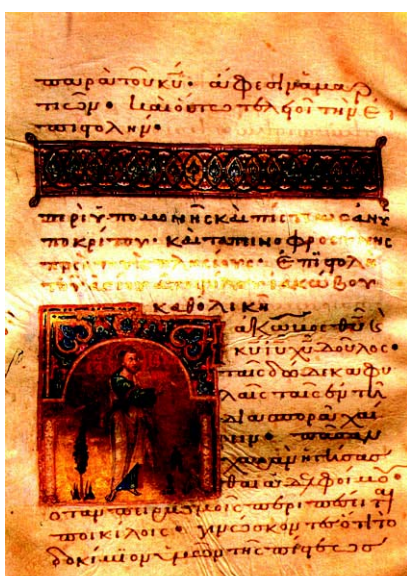 παρὰ τοῦ κυ̅· ἄφεσιν ἁμαρ
τιῶν· καὶ οὕτως τελειοῖ τὴν ἐ
πιστολήν·
περὶ ὑπομονῆς καὶ πίστεως ἀνυ
ποκρίτου· καὶ ταπεινοφροσύνης
πλησίους· ἐπιστολὴ
ἰακώβου
καθολικὴ
άκωβος θυ̅ κ̣
κυ̅ ιυ̅ χυ̅ δοῦλος·
ταῖς δώδεκα φυ
λαῖς ταῖς ἐν τῆ
διασπορᾶ χαί
ρειν· πᾶσαν
χαρὰν ἡγήσασ
θαι ἀδελφοί μο
ὅταν πειρασμοῖς
ποικίλοις· γινώσκοντες ὅτι τὸ
δοκίμιον ὑμῶν τῆς πίστεως